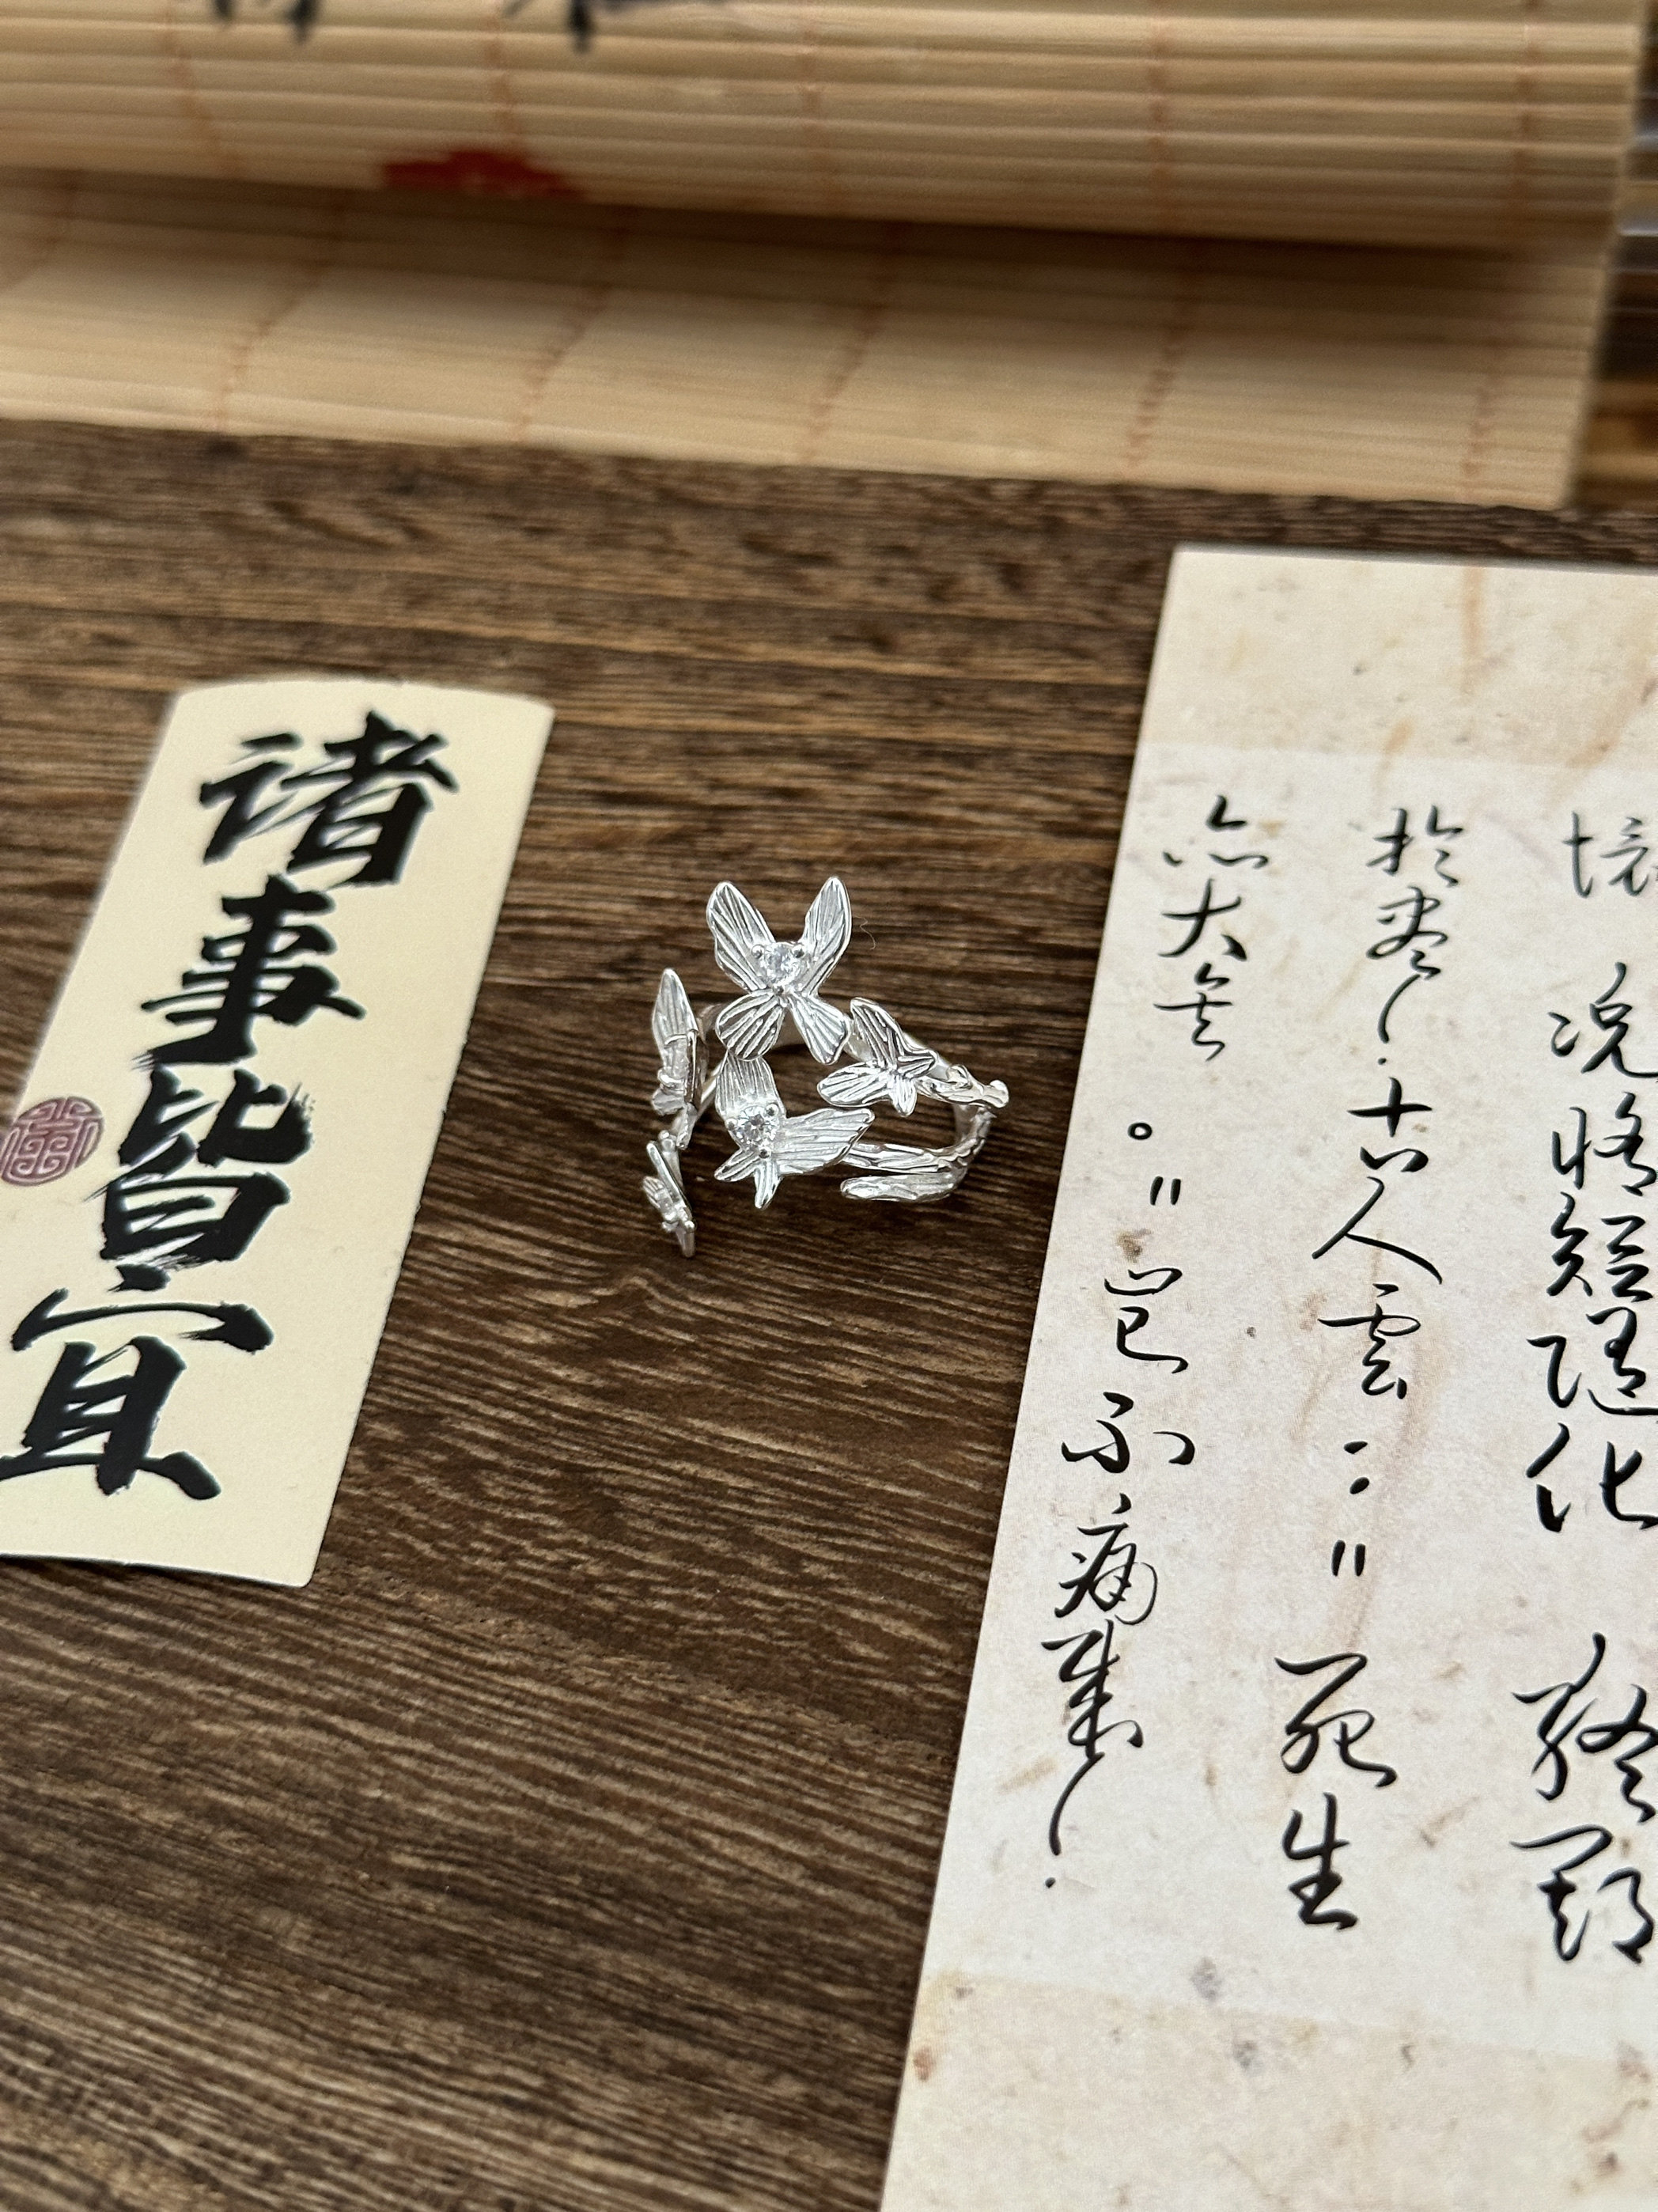 诸事皆宜
懷 況脩短隨化 終期
於盡！古人雲："死生
亦大矣。"豈不痛哉！